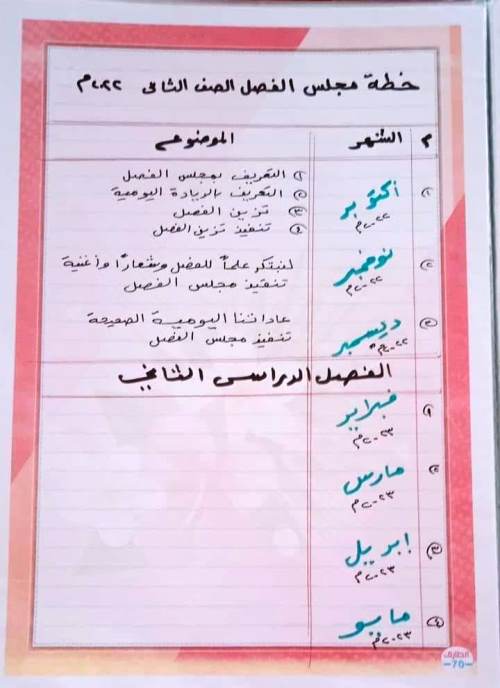 خطة مجلس الفصل الصف الثانى ٢٠٢٢م
م الشهر الموضوع
١ أكتوبر ٢٠٢٢م
١ التعريف بمجلس الفصل
٢ التعريف بالريادة اليومية
٣ تزين الفصل
٤ تنفيذ تزين الفصل
٢ نوفمبر ٢٠٢٢م
لنبتكر علماً للفصل وشعاراً وأغنية
تنفيذ مجلس الفصل
٣ ديسمبر ٢٠٢٢م
عاداتنا اليومية الصحيحة
تنفيذ مجلس الفصل
الفصل الدراسى الثاني
١ فبراير
٢٠٢٣م
٢ مارس
٢٠٢٣م
٣ إبريل
٢٠٢٣م
٤ مايو
٢٠٢٣م
-70-